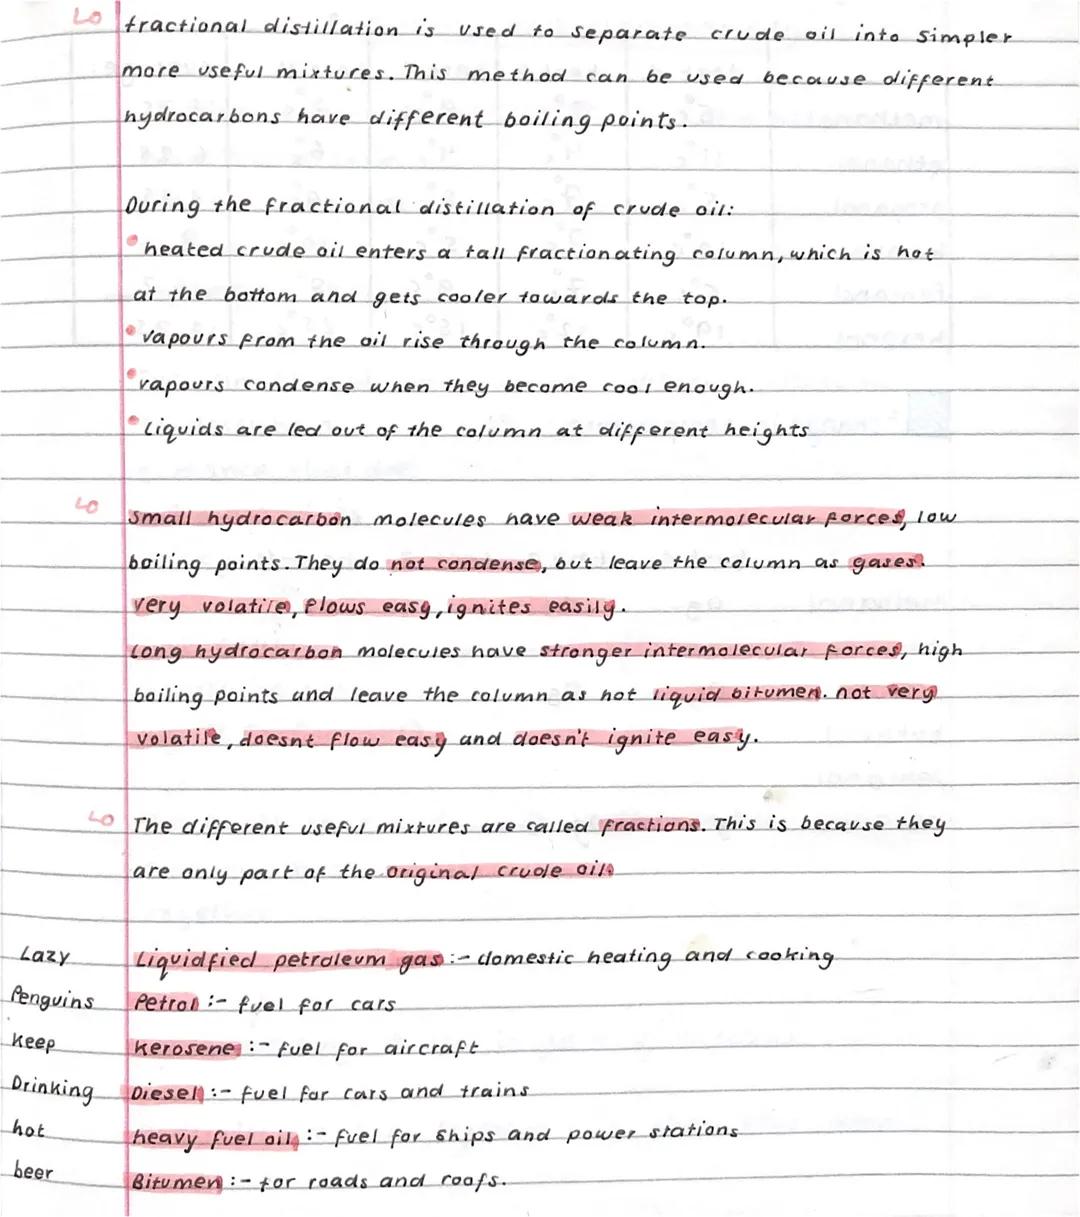 LO fractional distillation is used to separate crude oil into simpler
more useful mixtures. This method can be used because different
hydrocarbons have different boiling points.
During the fractional distillation of crude oil:
• heated crude oil enters a tall fractionating column, which is hot
at the bottom and gets cooler towards the top.
• vapours from the oil rise through the column.
• vapours condense when they become cool enough.
• Liquids are led out of the column at different heights
LO Small hydrocarbon molecules have weak intermolecular forces, low
boiling points. They do not condense, but leave the column as gases.
very volatile, flows easy, ignites easily.
Long hydrocarbon molecules have stronger intermolecular forces, high
boiling points and leave the column as hot liquid bitumen. not very
volatile, doesnt flow easy and doesn't ignite easy.
LO The different useful mixtures are called fractions. This is because they
are only part of the original crude oil.
Lazy Liquidfied petroleum gas :- domestic heating and cooking
Penguins Petrol :- fuel for cars
Keep Kerosene :- fuel for aircraft
Drinking Diesel :- fuel for cars and trains
hot heavy fuel oil :- fuel for ships and power stations
beer Bitumen :- for roads and roofs.